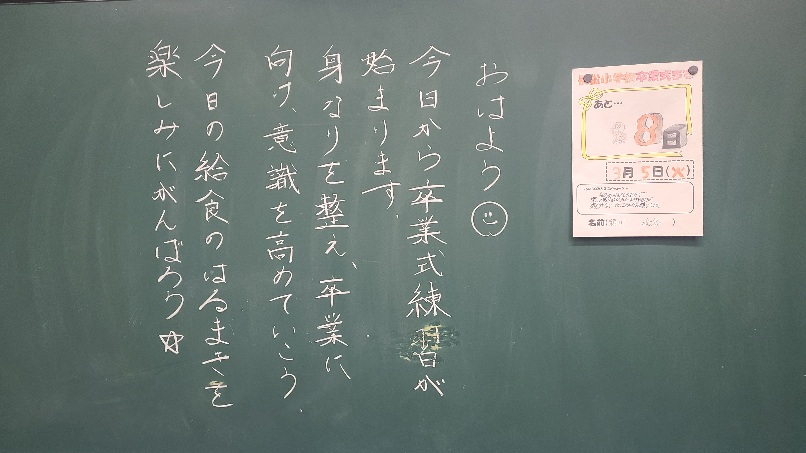 おはよう☺
今日から卒業式練習が
始まります。
身なりを整え、卒業に
向け、意識を高めていこう。
今日の給食のはるまきを
楽しみにがんばろう☆
小学校卒業式まで
あと…
8日
3月5日(火)
名前(